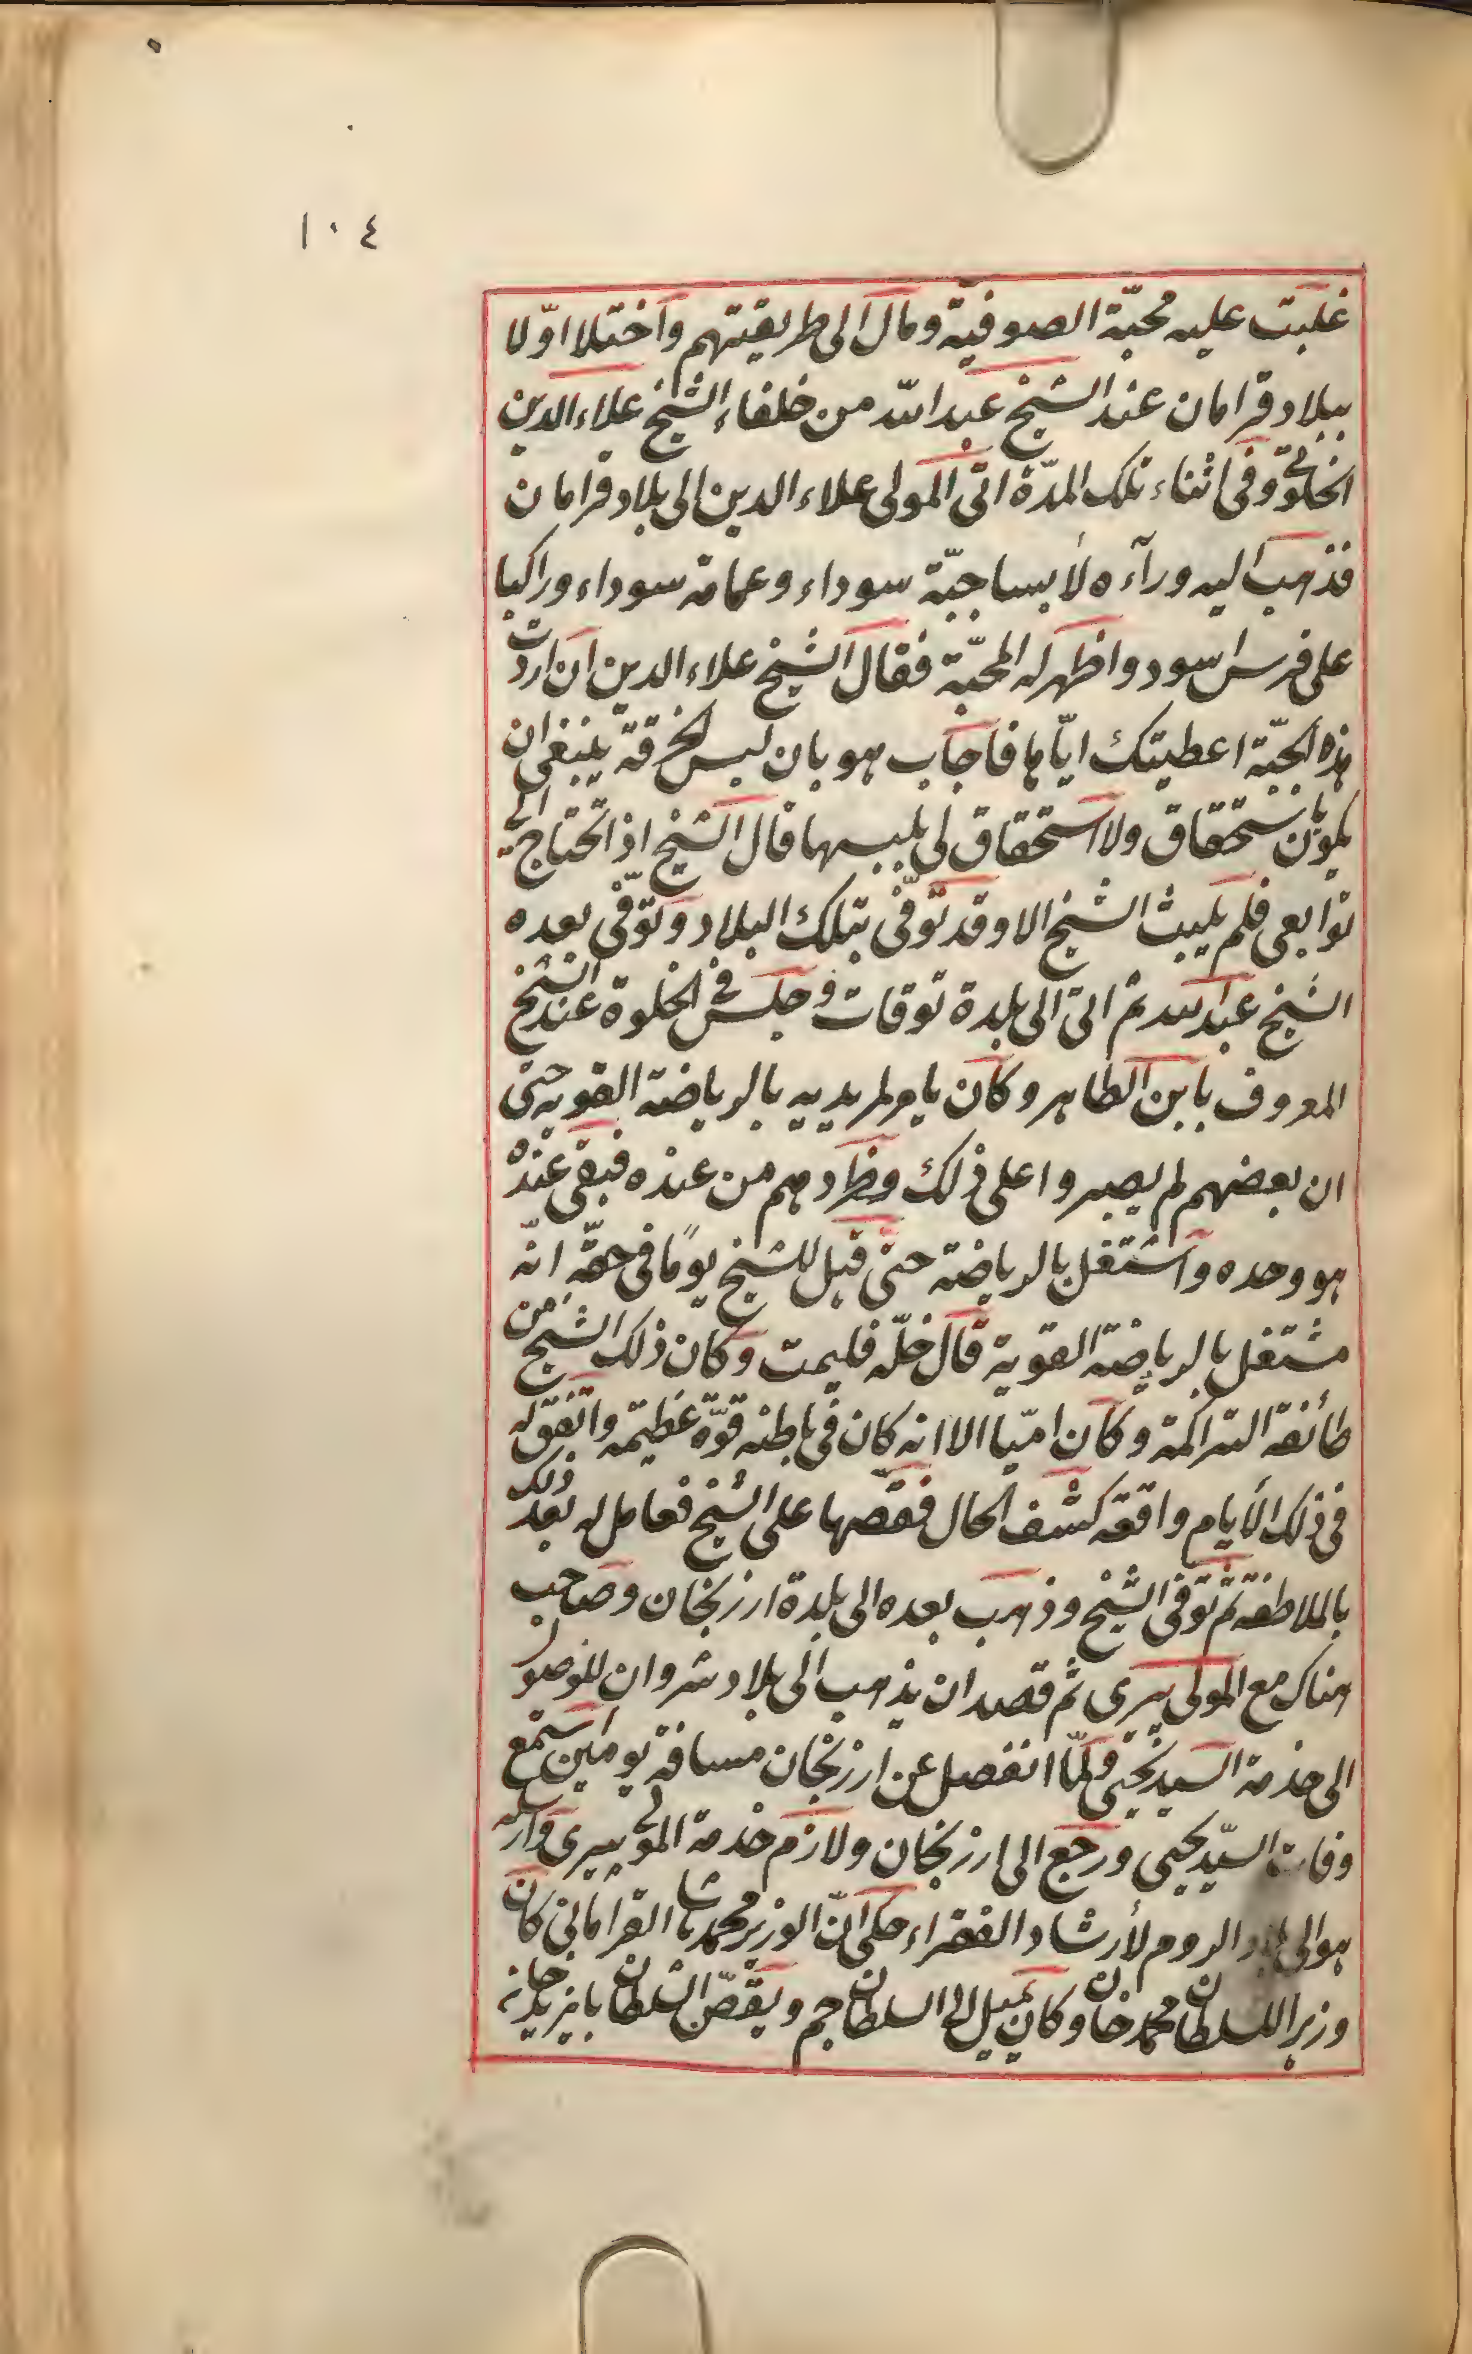 ١٠٤
غلبت عليه محبّة الصوفيّة ومال الى طريقيتهم واختلا اوّلا
ببلاد قرامان عند الشيخ عبد الله من خلفاء الشيخ علاء الدين
الخلوتى وفى اثناء تلك المدّة اتى المولى علاء الدين الى بلاد قرامان
فذهب اليه ورآءه لابسا جبّة سوداء وعمامة سوداء وراكبا
على فرس اسود واظهر له المحبّة فقال الشيخ علاء الدين ان اردت
هذه الجبّة اعطيتك ايّاها فاجاب هو بان لبس الخرقة ينبغى ان
يكون باستحقاق ولا استحقاق لى بلبسها قال الشيخ اذا تحتاج الى
توابعى فلم يلبث الشيخ الا وقد توفّى بتلك البلاد وتوفّى بعده
الشيخ عبد الله ثم اتى الى بلدة توقات وجلس فى الخلوة عند الشيخ
المعروف بابن الطاهر وكان يامر لمريديه بالرياضة القويه حتى
ان بعضهم لم يصبروا على ذلك وطردهم من عنده فبقى عنده
هو وحده واشتغل بالرياضة حتى قيل للشيخ يومًا فى حقّه انّه
مشتغل بالرياضة القوية قال خلّه فليمت وكان ذلك الشيخ من
طائفة التراكمة وكان امّيا الا انه كان فى باطنه قوّة عظيمة واتفق له
فى ذلك الأيام واقعة كشف الحال فقصّها على الشيخ فعامل له بعد ذلك
بالملاطفة ثم توفى الشيخ وذهب بعده الى بلدة ارزنجان وصاحب
هناك مع المولى پيرى ثم قصد ان يذهب الى بلاد شروان للوصول
الى خدمة السيد يحيى ولمّا انفصل عن ارزنجان مسافة يومين استمع
وفات السيّد يحيى ورجع الى ارزنجان ولازم خدمة المولى پيرى وارسله
هو الى بلاد الروم لأرشاد الفقراء حكى انّ الوزير محمد باشا القرامانى كان
وزيرا للسلطان محمد خان وكان يميل الى السلطان جم ويقصّ السلطان بايزيد خان